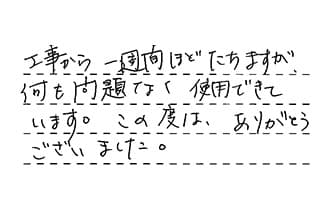 工事から一週間ほどたちますが、
何も問題なく使用できて
います。この度は、ありがとう
ございました。